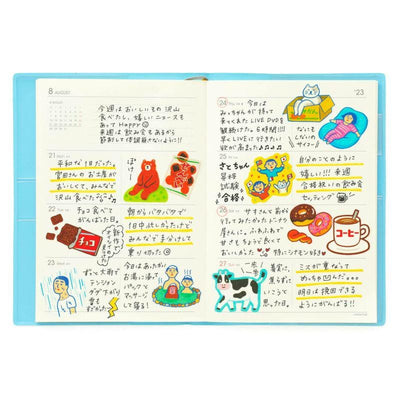 8 AUGUST
今週はおいしいもの沢山
食べたし、嬉しいニュースも
あってHappy
来週は飲み会もあるから
節制して体調崩さないように!!
21
平和な1日だった。
宮田さんのお土産が
おいしくて、みんなで
沢山食べた
ぼけー
22
チョコ食べて
がんばった日。
チョコ
新作で
朝からバタバタで
1日中忙しかったけど
みんなで手分けして
乗り切った
23
ずっと大雨で
テンション
ダダ下がり
今日はあったかい
お湯に浸って
パックと
マッサージ
して寝る!
'23
24
今日は
みっちゃんが持って
来てくれたLIVE DVDを
観続けた。6時間!!!
楽しくてLIVE行きたい
欲が高まった
なにも
しないの
サイコー
25
さとちゃん
昇格
試験
合格
自分のことのように
嬉しい!!! 来週
合格祝いの飲み会
セッティング
26
ササさんとあやち
がドーナツ
屋さんに。ふわふわで
甘さもちょうど良くて
おいしかった
特にシナモン好き
コーヒー
27
一歩!
着実に。
焦らずに
いこうと
思った日。
ミスが重なって
めっちゃ凹んだ
明日は挽回できる
ようにがんばる!!